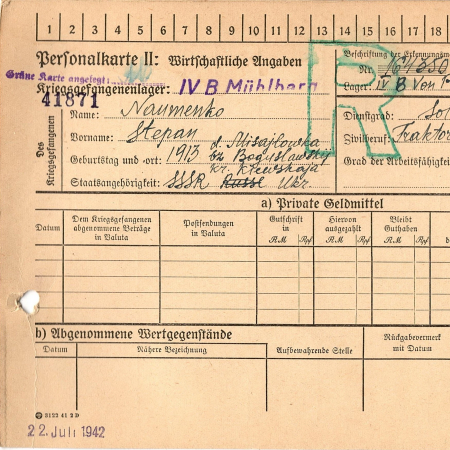 1 2 3 4 5 6 7 8 9 10 11 12 13 14 15 16 17 18
Personalkarte II: Wirtschaftliche Angaben
Beschriftung der Erkennungsm
Grüne Karte angelegt:
Nr.
Kriegsgefangenenlager: IV B Mühlberg
Lager: IV B
41871
Des Kriegsgefangenen
Name: Naumenko
Dienstgrad: Sol
Vorname: Stepan
Zivilberuf: Traktor
d. Misajlowka
Geburtstag und -ort: 1913 bz Boguslawskij
Grad der Arbeitsfähigkeit
kr. Kiewskaja
Staatsangehörigkeit: SSSR Russe Ukr.
a) Private Geldmittel
Datum
Dem Kriegsgefangenen abgenommene Beträge in Valuta
Postsendungen in Valuta
Gutschrift in
RM Rpf
Hiervon ausgezahlt
RM Rpf
Bleibt Guthaben
RM Rpf
b) Abgenommene Wertgegenstände
Datum
Nähere Bezeichnung
Aufbewahrende Stelle
Rückgabevermerk mit Datum
5122 41 2 D
22. Juli 1942